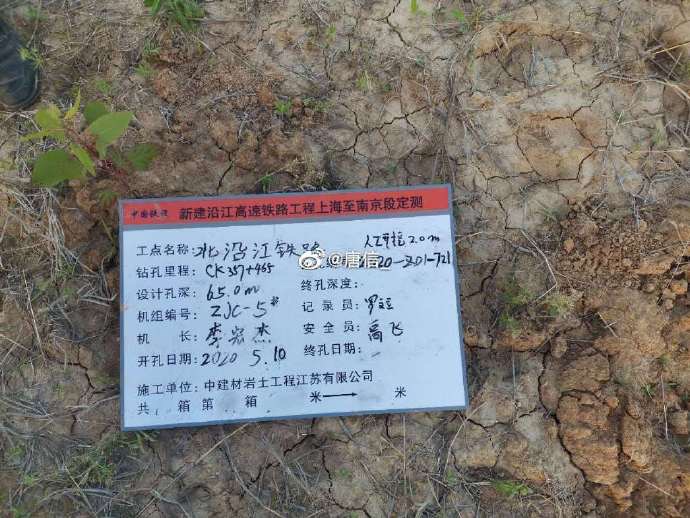 中国铁设 新建沿江高速铁路工程上海至南京段定测
工点名称：北沿江铁路 人工开挖2.0m
钻孔里程：CK357+465 20-301-721
设计孔深：65.0m 终孔深度：
机组编号：ZJC-5# 记录员：罗
机 长：李宏杰 安全员：高飞
开孔日期：2020 5.10 终孔日期：
施工单位：中建材岩土工程江苏有限公司
共 箱 第 箱 米 → 米
@唐信_